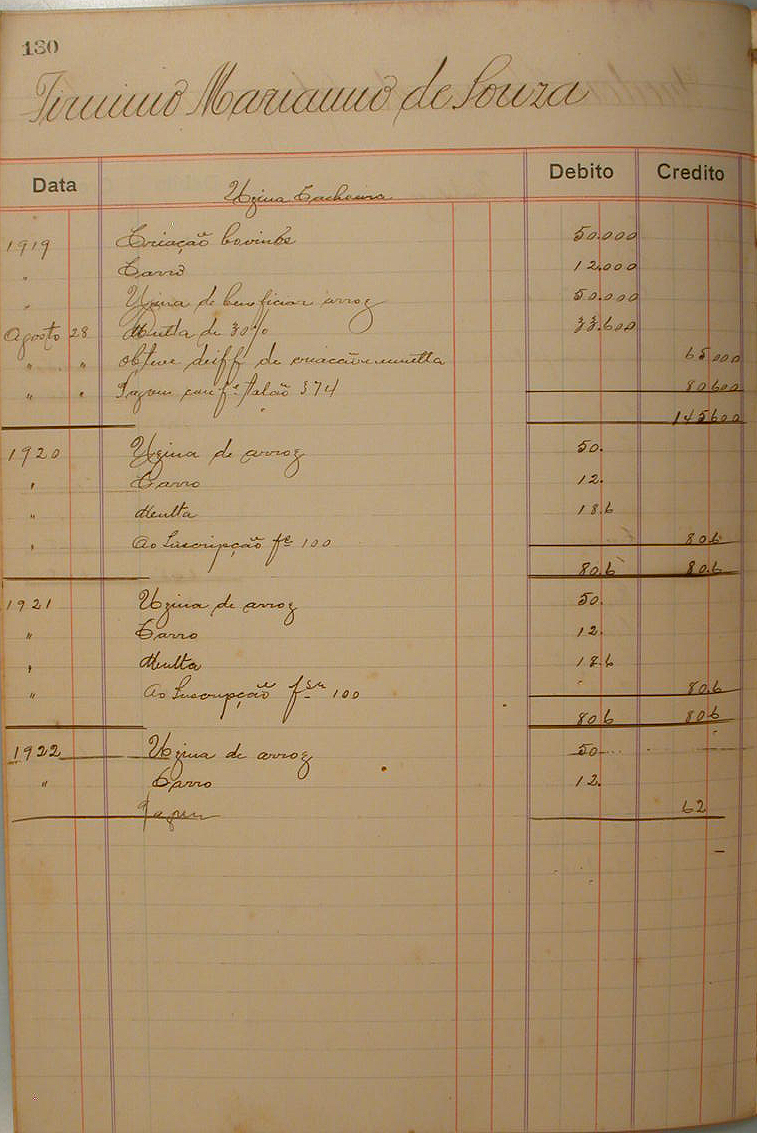 130
Firminio Marianno de Souza
Data Debito Credito
Uzina Cachoeira
1919 Criação bovinos 50.000
" Carro 12.000
" Uzina de beneficiar arroz 50.000
Agosto 28 Multa de 30% 33.600
" " Obteve deiff de creação e multa 65000
" " Pagou conf. talão 374 80600
145600
1920 Uzina de arroz 50.
" Carro 12.
" Multa 18.6
" Ao Inscripção fs 100 80.6
80.6 80.6
1921 Uzina de arroz 50.
" Carro 12.
" Multa 18.6
" Ao Inscripção 100 80.6
80.6 80.6
1922 Uzina de arroz 50
" Carro 12.
Pagou 62